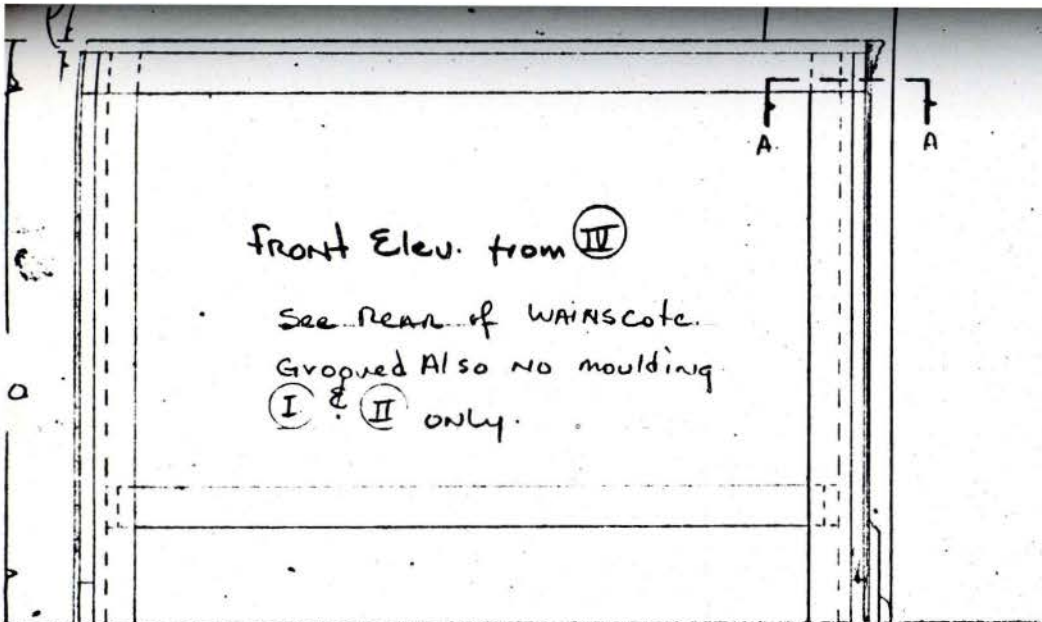 A A
FRONT Elev. from IV
See REAR of WAINSCOTE.
Grooved Also NO moulding
I & II ONLY.